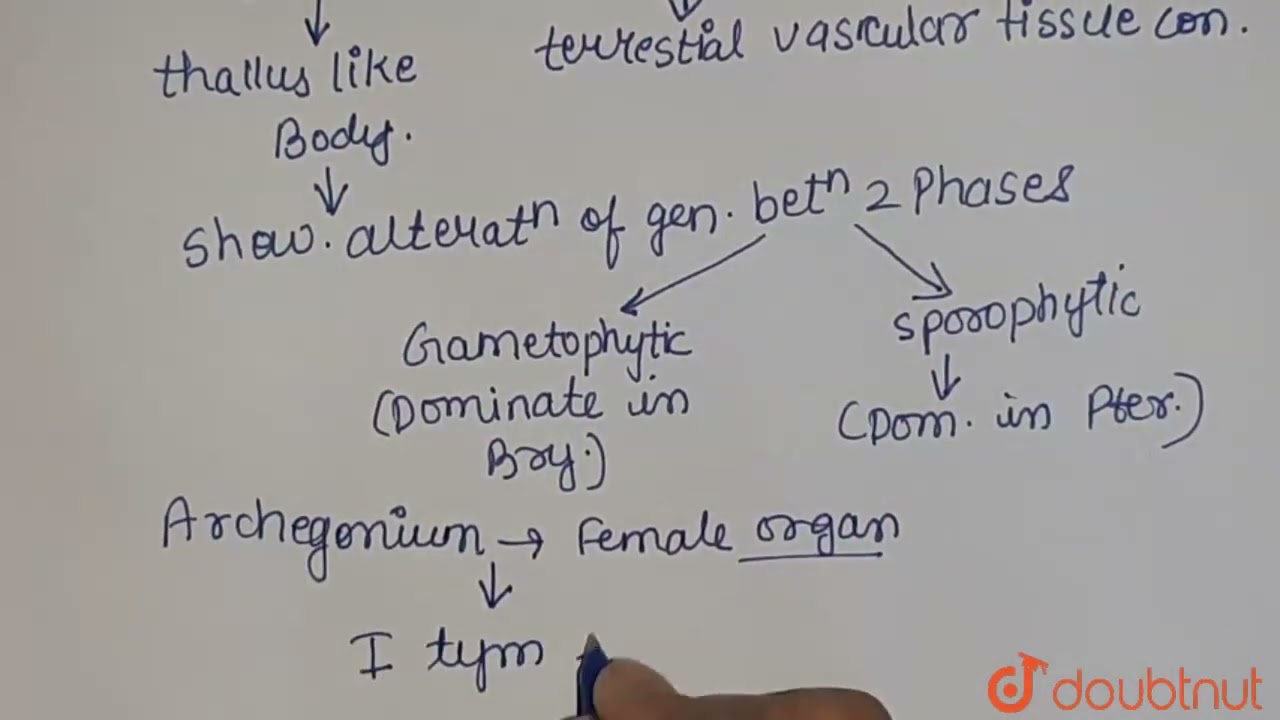 terrestial vascular tissue con.
thallus like
Body.
show. alteratn of gen. betn 2 Phases
Gametophytic
sporophytic
(Dominate in
Bry.)
(Dom. in Pter.)
Archegonium → Female organ
I tym
doubtnut